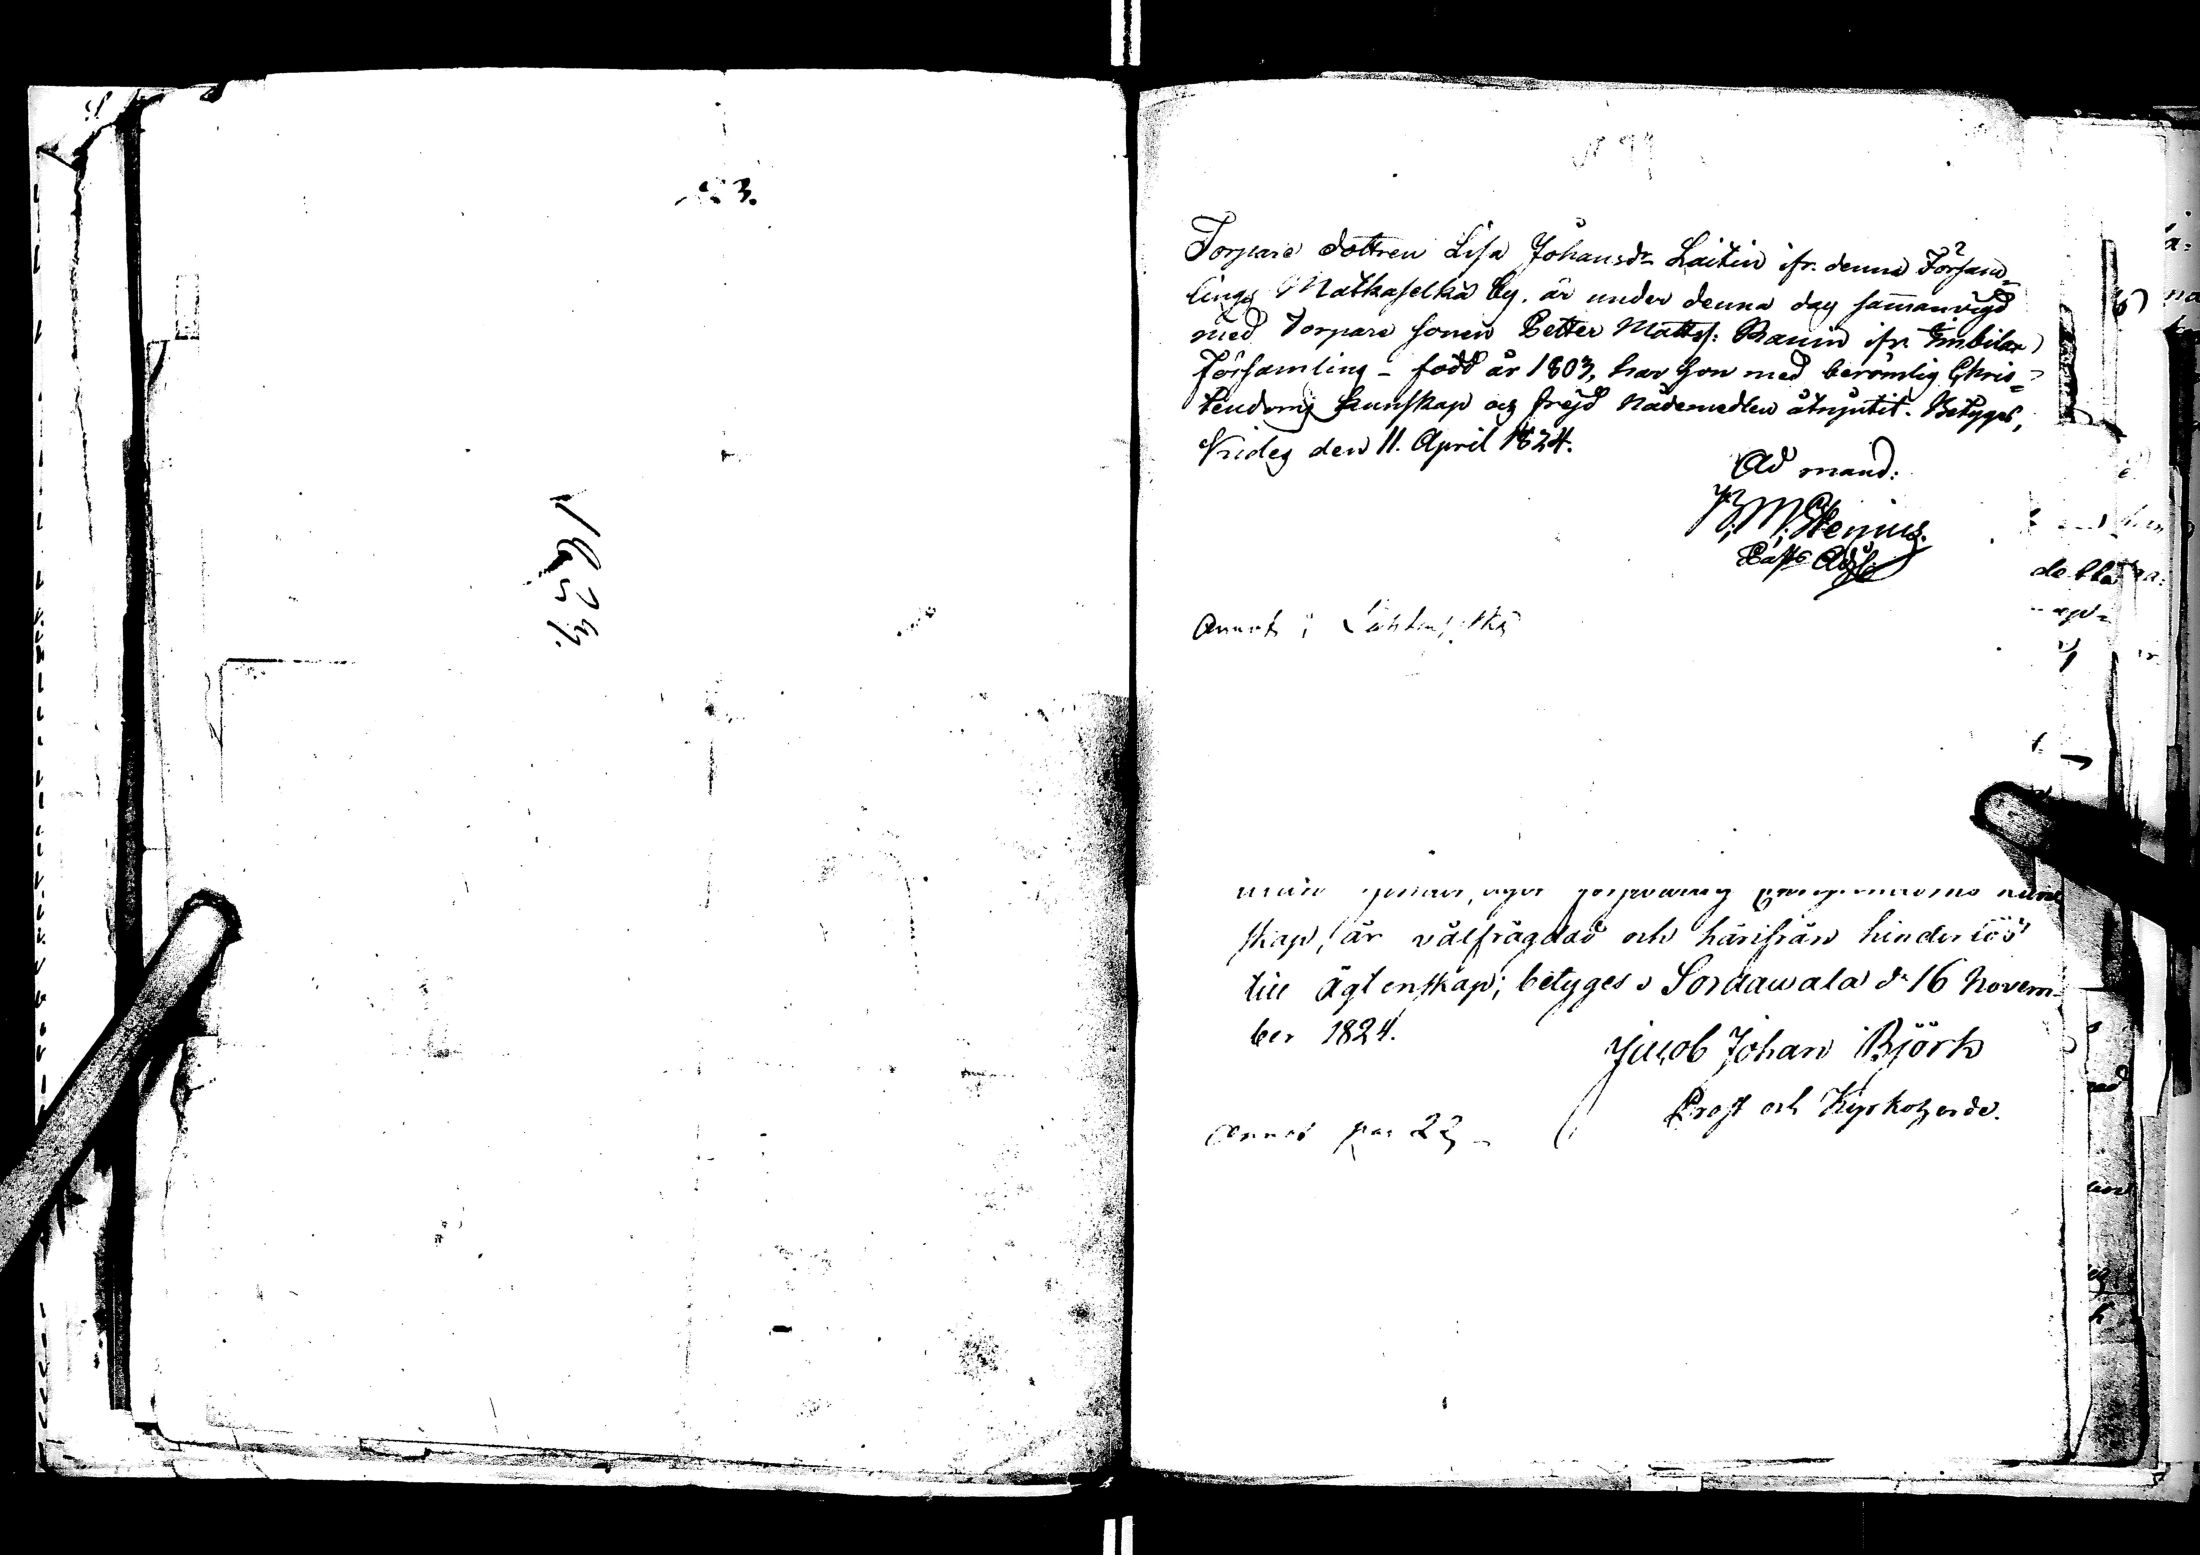 3.
1824.
Torpare dottren Lisa Johansdr Laitin ifr. denna Försam=
lings Matkaselkä by. är under denna dag sam̄anvigd
med Torpare sonen Petter Mattss: Ranin ifr. Imbilax
Församling - född år 1803, har hon med berömlig Chris=
tendoms kunskap og frejd Nådemedlen åtnjutit. Betyges,
den 11. April 1824.
Ad mand:
Stenius.
Annot i
skap, är välfrägdad och härifrån hinderlös
till Ägtenskap; betyges. Sordawala d. 16 Novem-
ber 1824.
Jacob Johan Björk
Prost och Kyrkoherde.
Annot pag 22